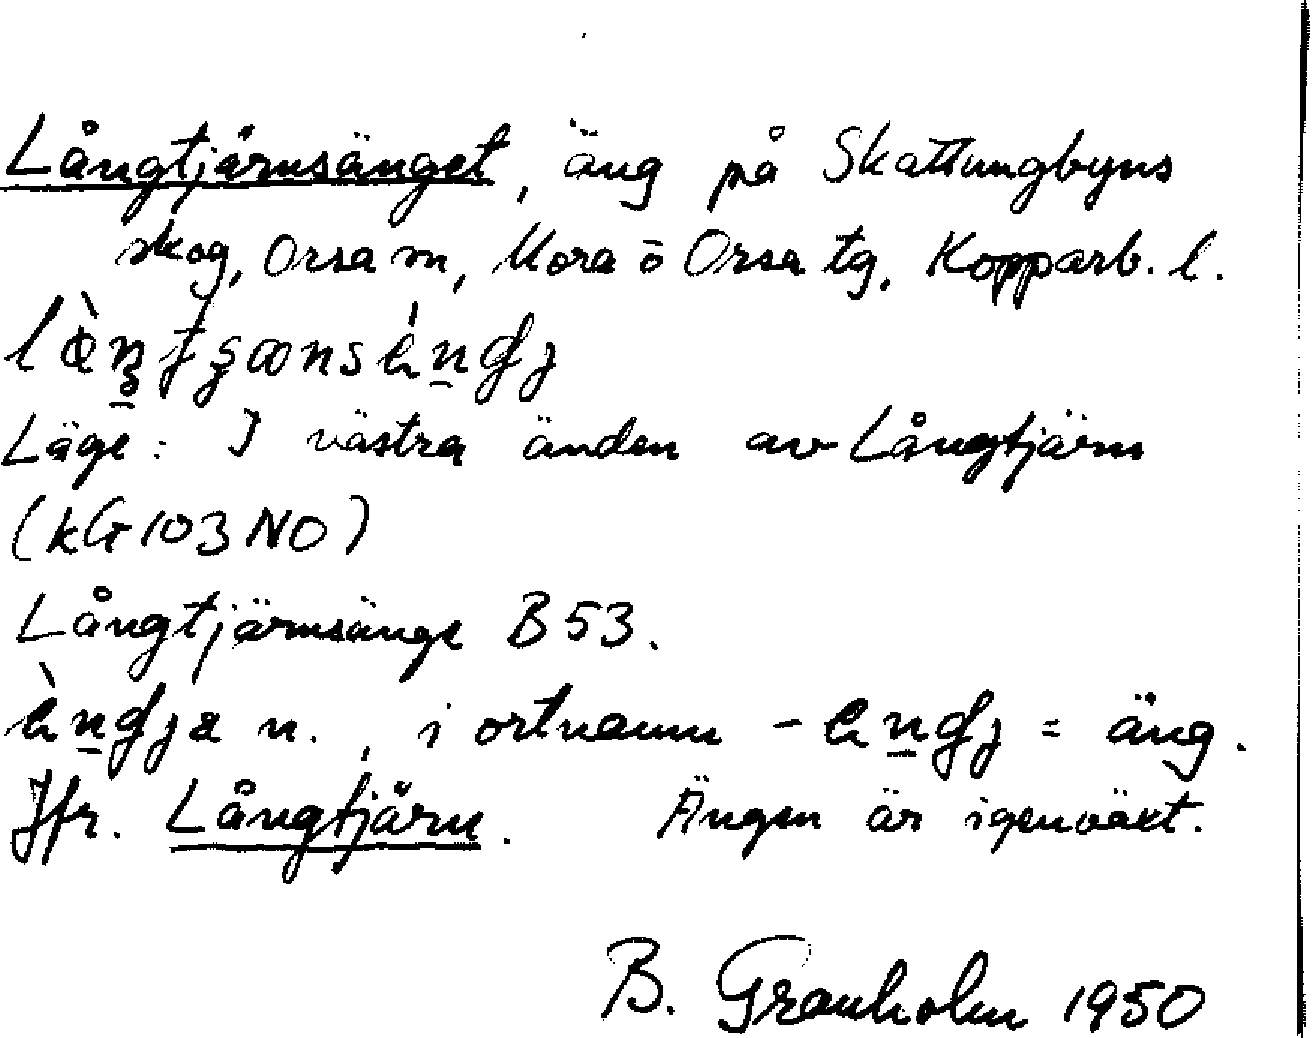 Långtjärnsänget, äng på Skattungbyns
skog, Orsa sn, Mora o Orsa tg, Kopparb. l.
Läge: I västra änden av Långtjärn
(kG103NO)
Långtjärnsänge B53.
n., i ortnamn = äng.
Jfr. Långtjärn. Ängen är igenväxt.
B. Granholm 1950